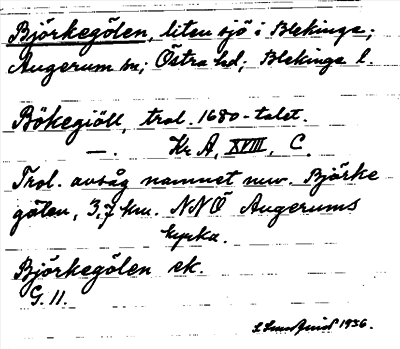 Björkegölen, liten sjö i Blekinge;
Augerum sn; Östra hd; Blekinge l.
Bökegiöll, trol. 1680-talet.
—. Kr. A, XVIII, C.
Trol. avsåg namnet nuv. Björke
gölen, 3,7 km. NNÖ Augerums
kyrka.
Björkegölen ek.
G. 11.
1936.